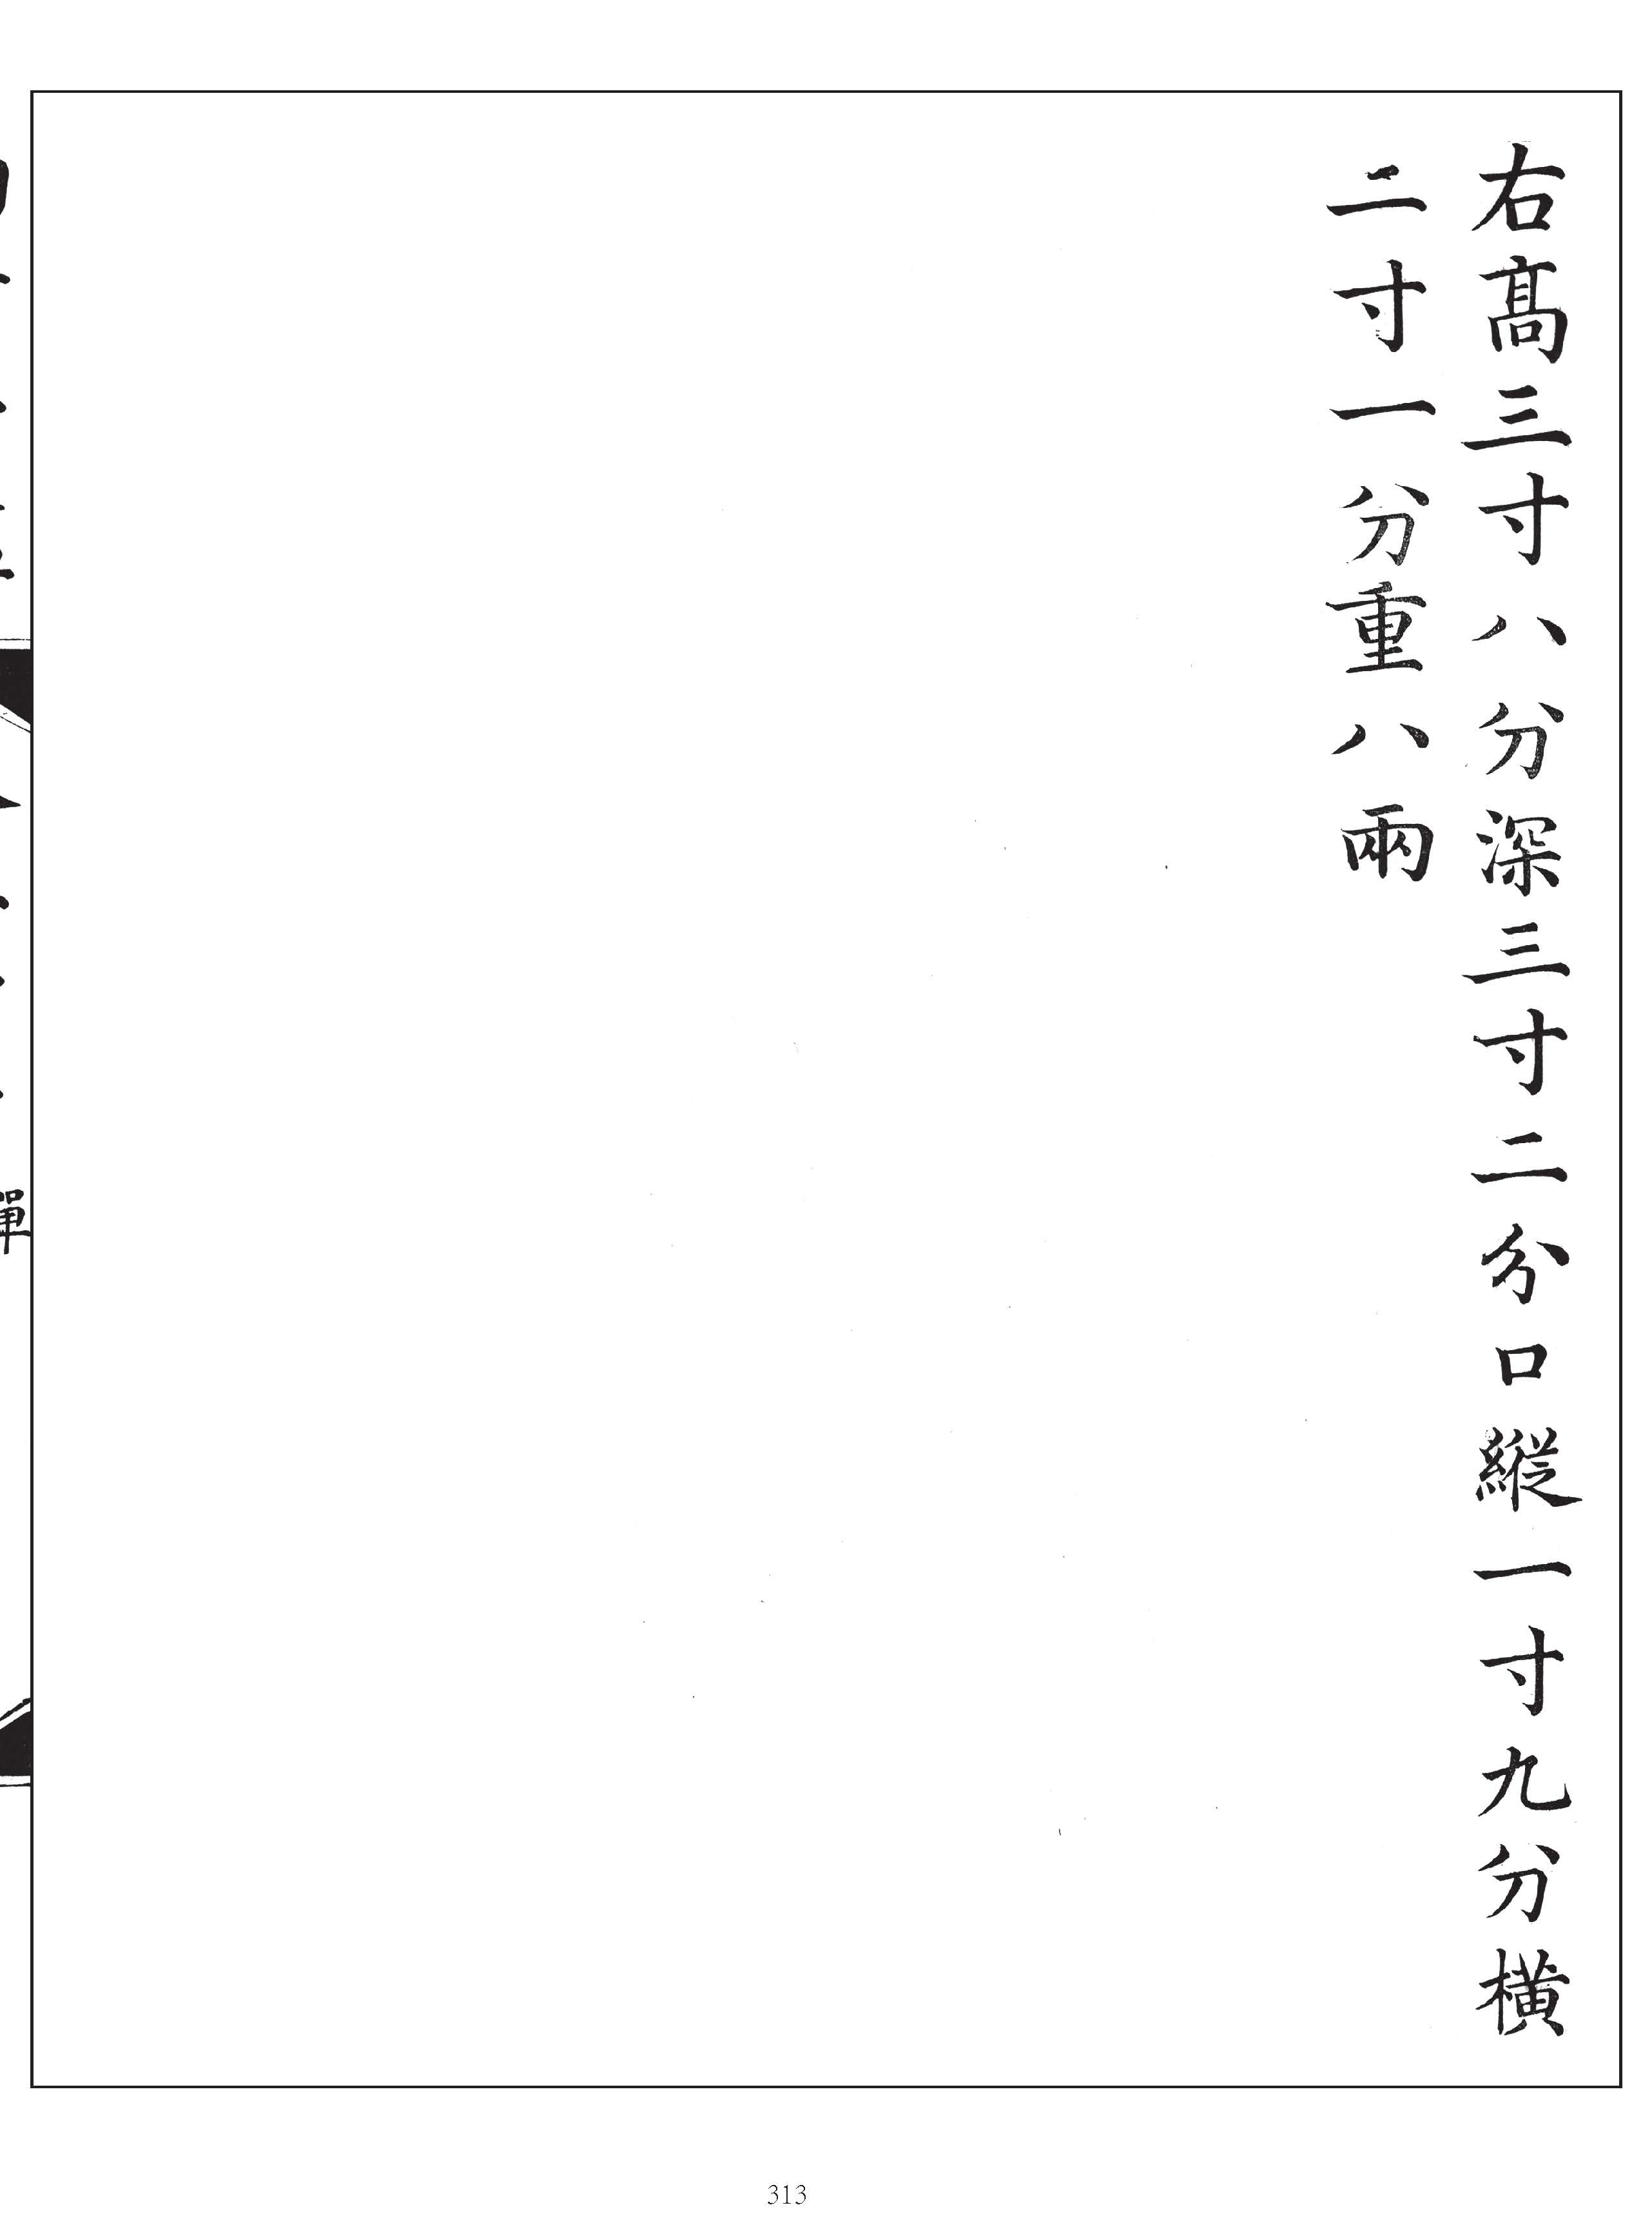 右髙三寸八分深三寸二分口縱一寸九分橫
二寸一分重八兩
313